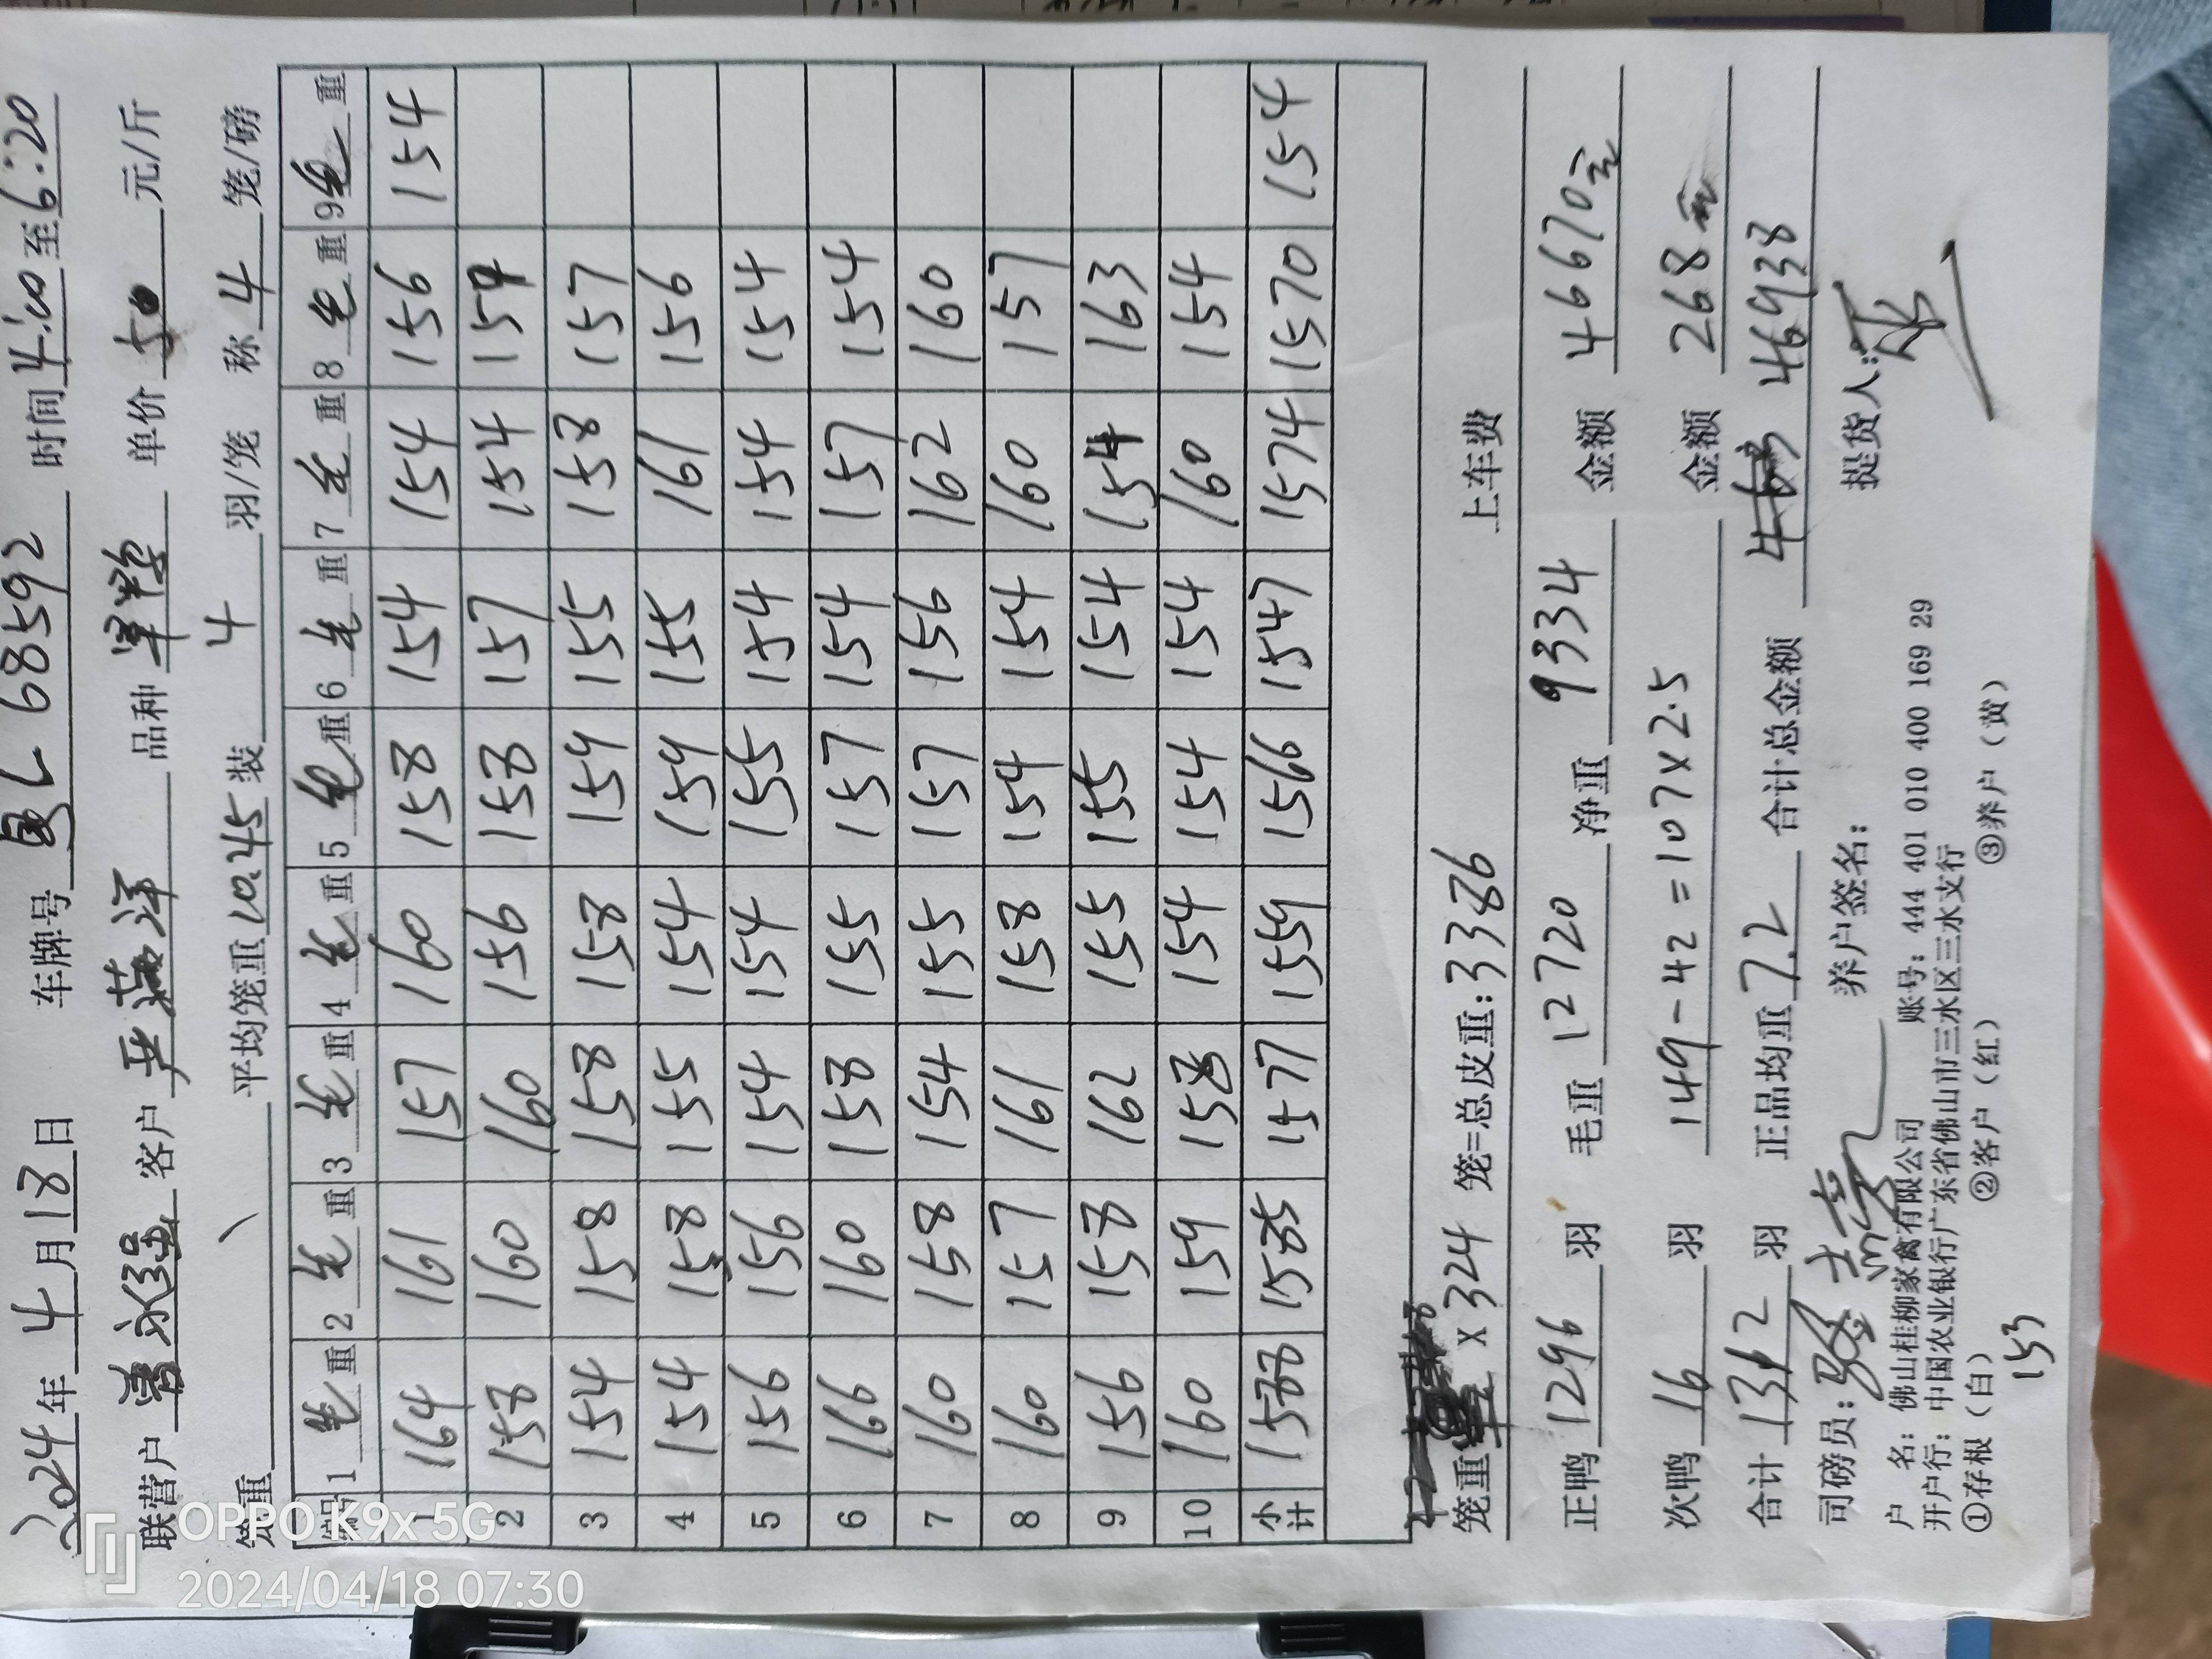 2024年4月18日 车牌号 L68592 时间4:00至6:20
联营户 客户 品种 单价5.0元/斤
笼重 平均笼重10.45装4羽/笼 称4笼/磅
编号 1毛重 2毛重 3毛重 4毛重 5毛重 6毛重 7毛重 8毛重 9毛重
1 164 161 157 160 158 154 154 156 154
2 158 160 160 156 158 157 154 154
3 154 158 158 158 159 155 158 157
4 154 158 155 154 159 155 161 156
5 156 156 154 154 155 154 154 154
6 166 160 158 155 157 154 157 154
7 160 158 154 155 157 156 162 160
8 160 157 161 158 154 154 160 157
9 156 158 162 155 155 154 154 163
10 160 159 158 154 154 154 160 154
小计 1588 1585 1577 1559 1566 1547 1574 1570 154
笼重 X 324 笼=总皮重:3386 上车费
正鸭1296羽 毛重12720净重9334金额46670元
次鸭16羽 149-42=107×2.5 金额268元
合计1312羽 正品均重7.2合计总金额 46938
司磅员: 养户签名: 提货人:
户 名:佛山桂柳家禽有限公司 账号:444 401 010 400 169 29
开户行:中国农业银行广东省佛山市三水区三水支行
①存根(白) ②客户(红) ③养户(黄)
153
OPPO K9x 5G
2024/04/18 07:30